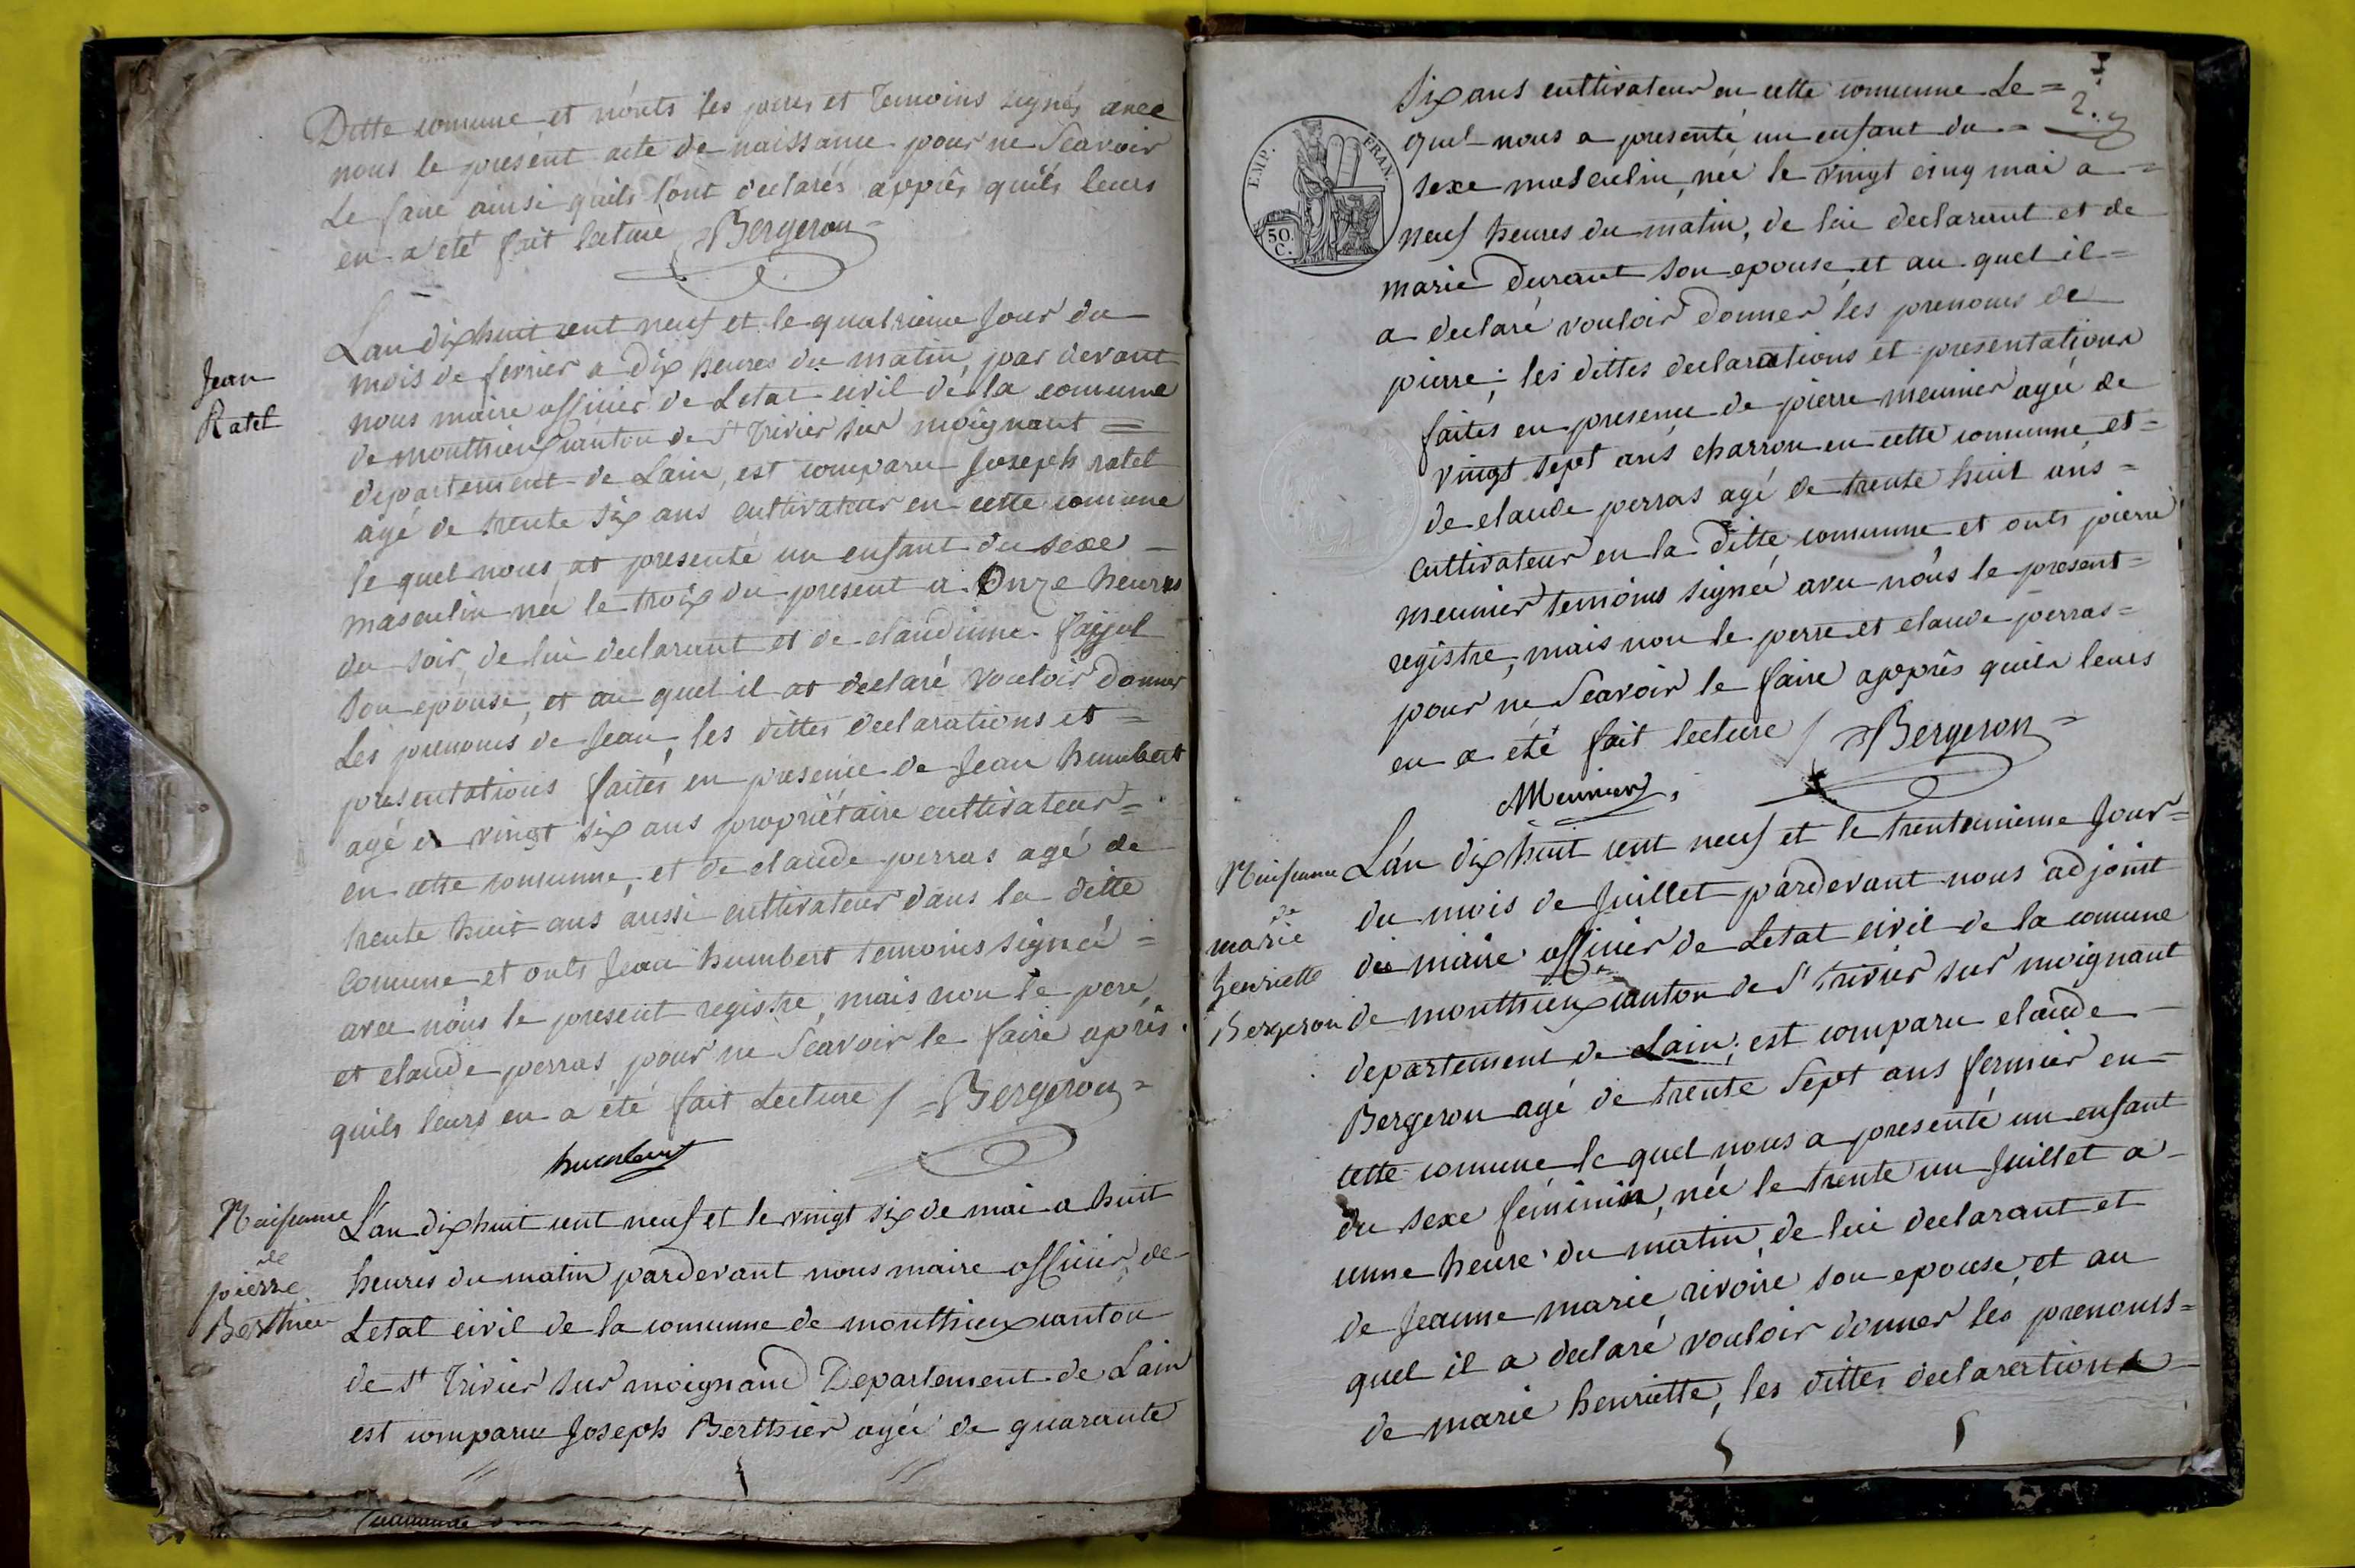 Ditte comune et n'onts les peres et temoins signés avec
nous le présent acte de naissance pour ne Scavoir
Le faire ainsi quils l'ont declarés apprês quils leurs
en a été fait lecture Bergeron
Jean
Ratel
L'an dix huit cent neuf et le quatrieme Jour du
mois de fevrier a dix heures du matin, par devant
nous maire officier de Letat civil de la comune
de monthieux canton de St trivier sur moignant =
departement de Lain, est comparu Joseph ratel
agé de trente six ans cultivateur en cette comune
le quel nous at presenté un enfant du sexe
masculin née le troix du present a Onze heures
du soir, de lui declarant et de claudinne
son epouse, et au quel il at declaré vouloir donner
Les prenoms de Jean, les dittes declarations et =
presentations faites en presence de Jean humbert
agé de vingt six ans propriétaire cultivateur =
en cette comunne, et de claude perras agé de
trente huit ans aussi cultivateur dans la ditte
Comune et onts Jean humbert temoins signéé =
avec nous le present registre, mais non le pere,
et claude perras pour ne Scavoir le faire après
quils leurs en a été fait Lecture / = Bergeron =
humbert
Naissance
de
pierre
Berthier
L'an dix huit cent neuf et le vingt six de mai a huit
heures du matin pardevant nous maire officier de
Letat civil de la comunne de monthieux canton
de St trivier sur moignand Departement de Lain
est comparu Joseph Berthier agéé de quarante
2.
Six ans cultivateur en cette comunne Le =
quel nous a presenté un enfant du =
sexe masculin, née le vingt cinq mai a =
neuf heures du matin, de lui declarant et de
marie Durant son epouse et au quel il =
a declaré vouloir donner les prenoms de
pierre; les dittes declarations et presentations
faites en presence de pierre meunier agée de
vingt sept ans charron en cette comunne et =
de claude perras agé de trente huit ans =
cultivateur en la ditte comunne et onts pierre
meunier temoins signéé avec nous le present =
registre, mais non le perre et claude perras =
pour ne Scavoir le faire apprês quils leurs
en a été fait lecture / Bergeron =
Meunier
EMP. FRAN.
50.
C.
Naissance
de
marie
henriette
Bergeron
L'an dix huit cent neuf et le trentunieme Jour =
du mois de Juillet pardevant nous adjoint
du maire officier de Letat civil de la comune
de monthieux canton de St trivier sur moignant
departement de Lain; est comparu claude
Bergeron agé de trente Sept ans fermier en =
cette comune le quel nous a presenté un enfant
du sexe féminin, née le trente un Juillet a
unne heure du matin, de lui declarant et
de Jeanne marie rivoire son epouse, et au
quel il a declaré vouloir donner les prenoms =
de marie henriette, les dittes declarations